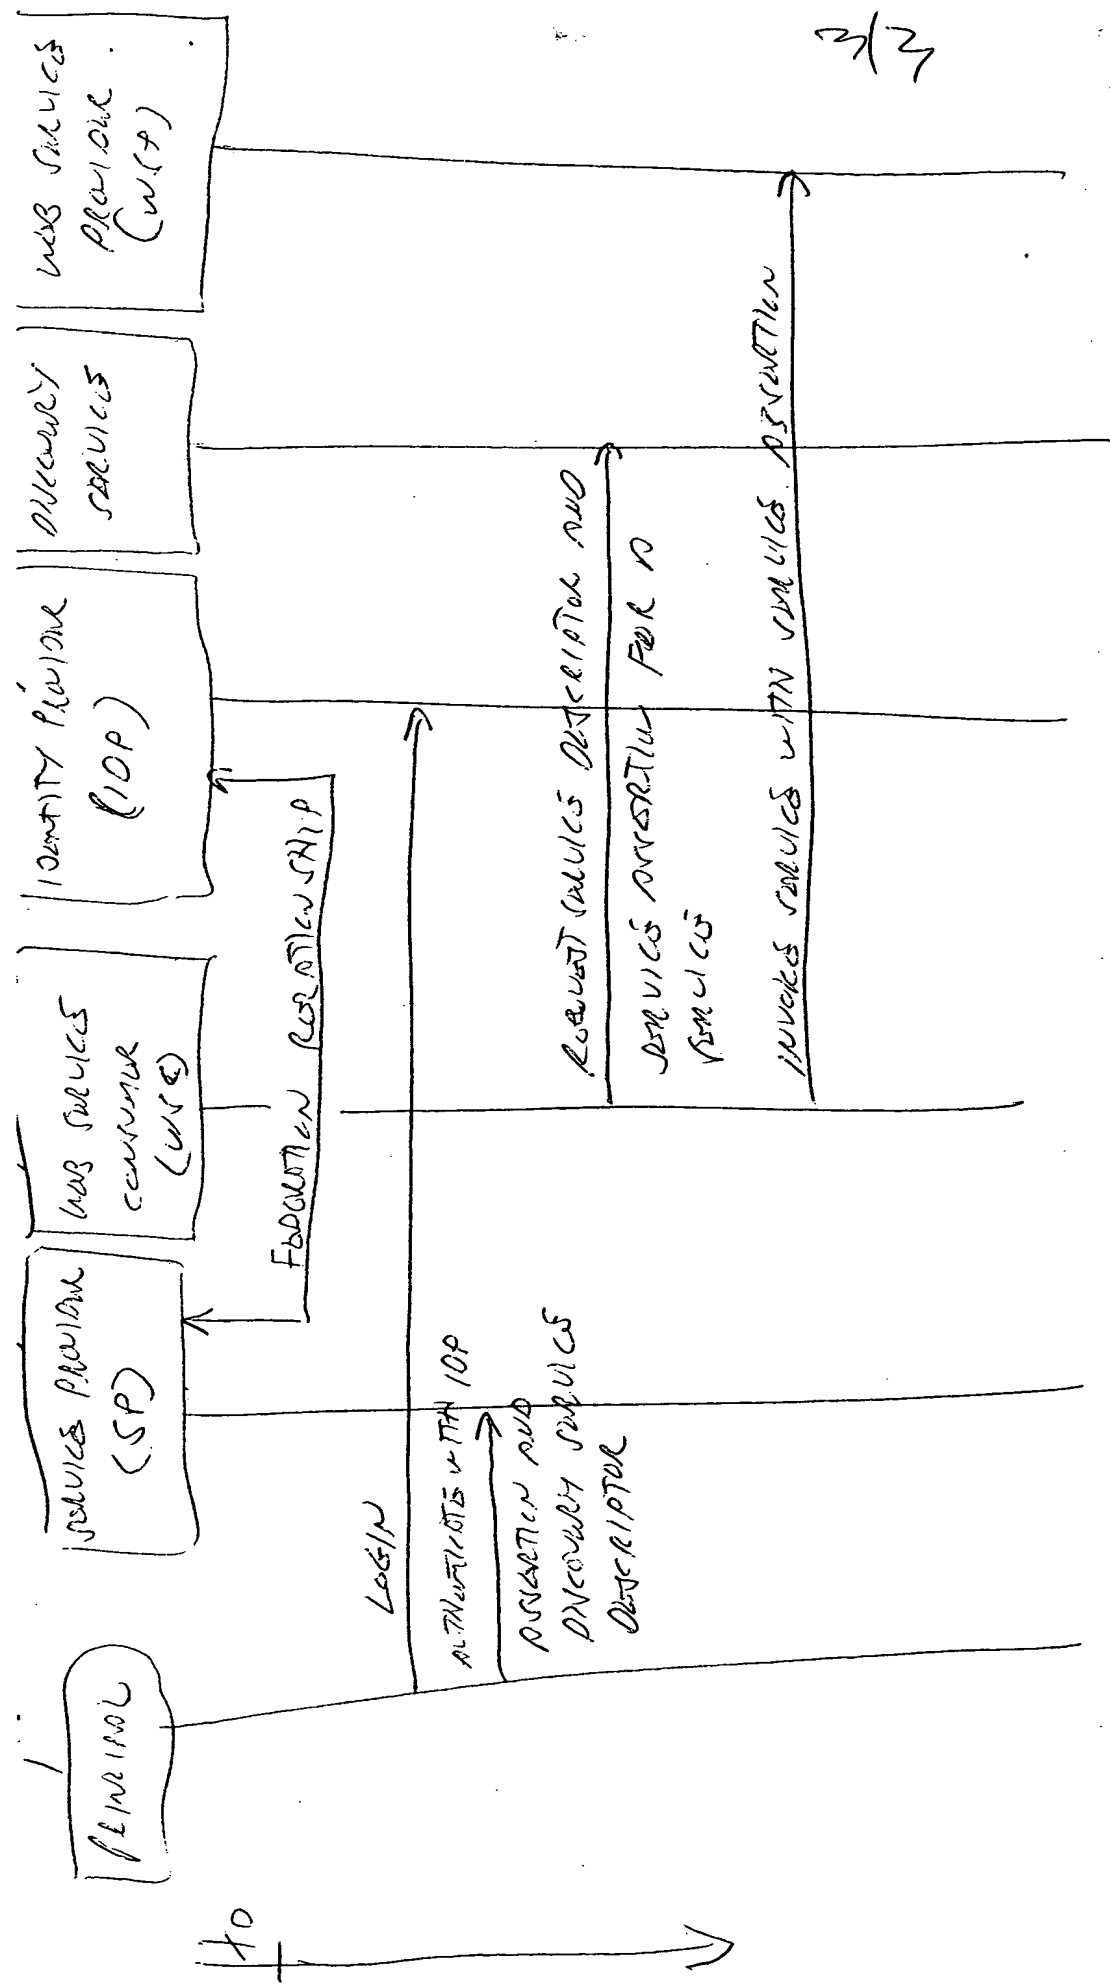 3/3
PRINCIPAL
SERVICE PROVIDER
(SP)
WEB SERVICE
CONSUMER
(WSC)
IDENTITY PROVIDER
(IDP)
DISCOVERY
SERVICE
WEB SERVICE
PROVIDER
(WSP)
FEDERATION RELATIONSHIP
LOGIN
AUTHENTICATE WITH IDP
ASSERTION AND
DISCOVERY SERVICE
DESCRIPTOR
REQUEST SERVICE DESCRIPTOR AND
SERVICE ASSERTION FOR A
SERVICE
INVOKE SERVICE WITH SERVICE ASSERTION